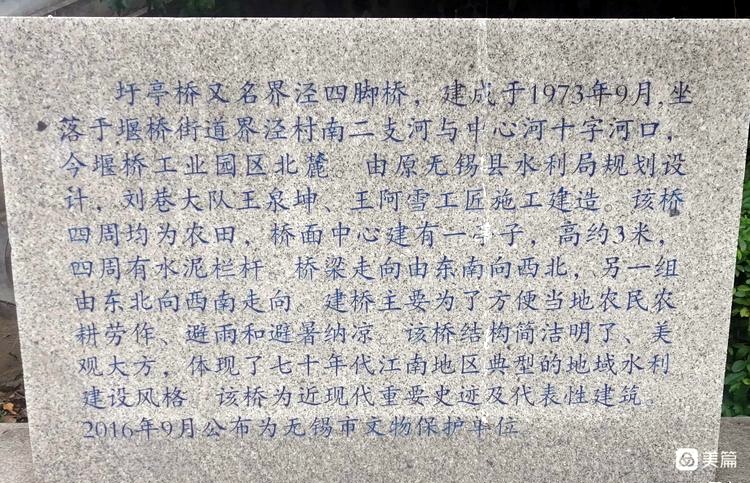 圩亭桥又名界泾四脚桥，建成于1973年9月,坐
落于堰桥街道界泾村南二支河与中心河十字河口，
今堰桥工业园区北麓。由原无锡县水利局规划设
计，刘巷大队王泉坤、王阿雪工匠施工建造。该桥
四周均为农田，桥面中心建有一亭子，高约3米，
四周有水泥栏杆 桥梁走向由东南向西北，另一组
由东北向西南走向 建桥主要为了方便当地农民农
耕劳作、避雨和避暑纳凉 该桥结构简洁明了、美
观大方，体现了七十年代江南地区典型的地域水利
建设风格 该桥为近现代重要史迹及代表性建筑。
2016年9月公布为无锡市文物保护单位
美篇